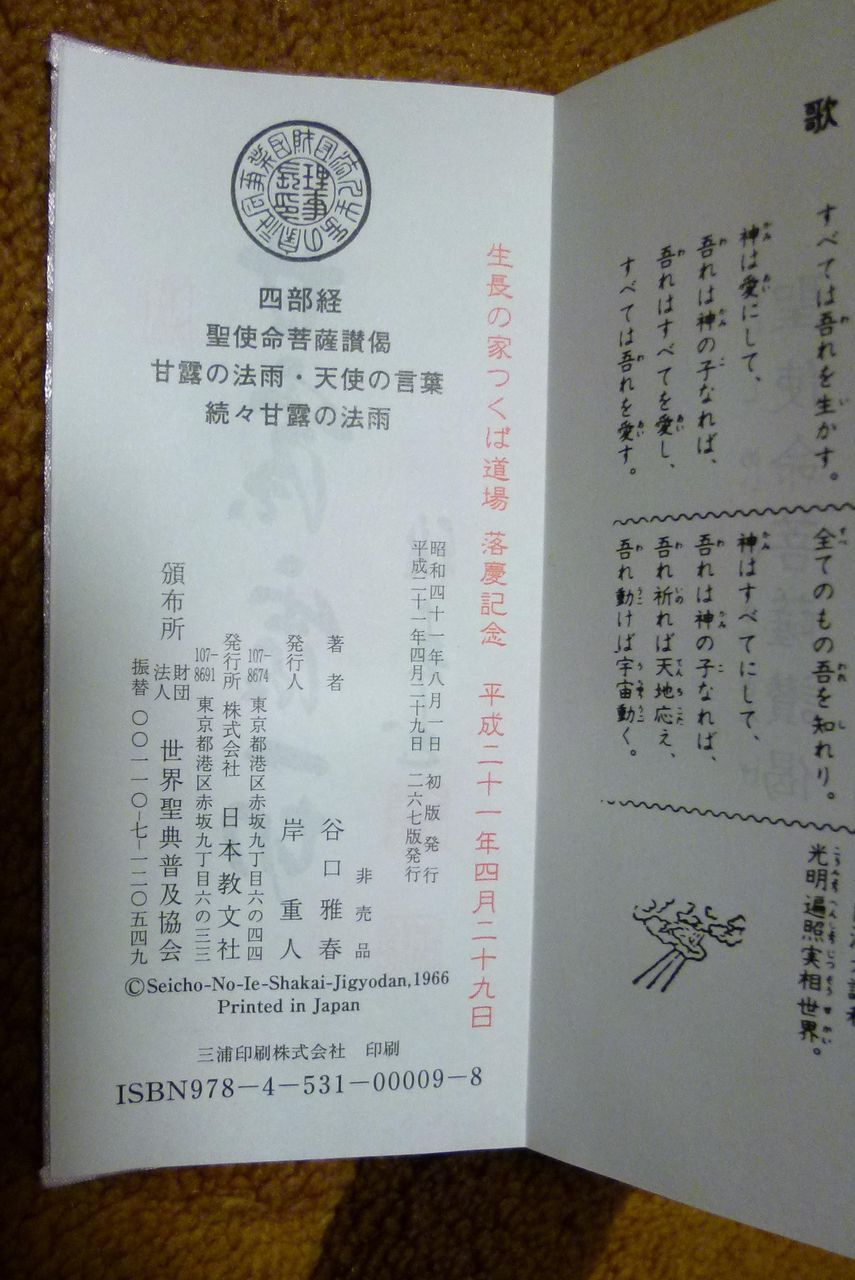 歌
すべては吾れを生かす。
神は愛にして、
吾れは神の子なれば、
吾れはすべてを愛し、
すべては吾れを愛す。
全てのもの吾を知れり。
神はすべてにして、
吾れは神の子なれば、
吾れ祈れば天地応え、
吾れ動けば宇宙動く。
光明遍照実相世界。
理事長印
四部経
聖使命菩薩讃偈
甘露の法雨・天使の言葉
続々甘露の法雨
生長の家つくば道場 落慶記念 平成二十一年四月二十九日
昭和四十一年八月一日 初版発行
平成二十一年四月二十九日 二六七版発行
非売品
著者 谷口雅春
発行人 岸重人
107-8674 東京都港区赤坂九丁目六の四四
発行所 株式会社 日本教文社
107-8691 東京都港区赤坂九丁目六の三三
頒布所 財団法人 世界聖典普及協会
振替 〇〇一一〇-七-一二〇五四九
©Seicho-No-Ie-Shakai-Jigyodan,1966
Printed in Japan
三浦印刷株式会社 印刷
ISBN978-4-531-00009-8